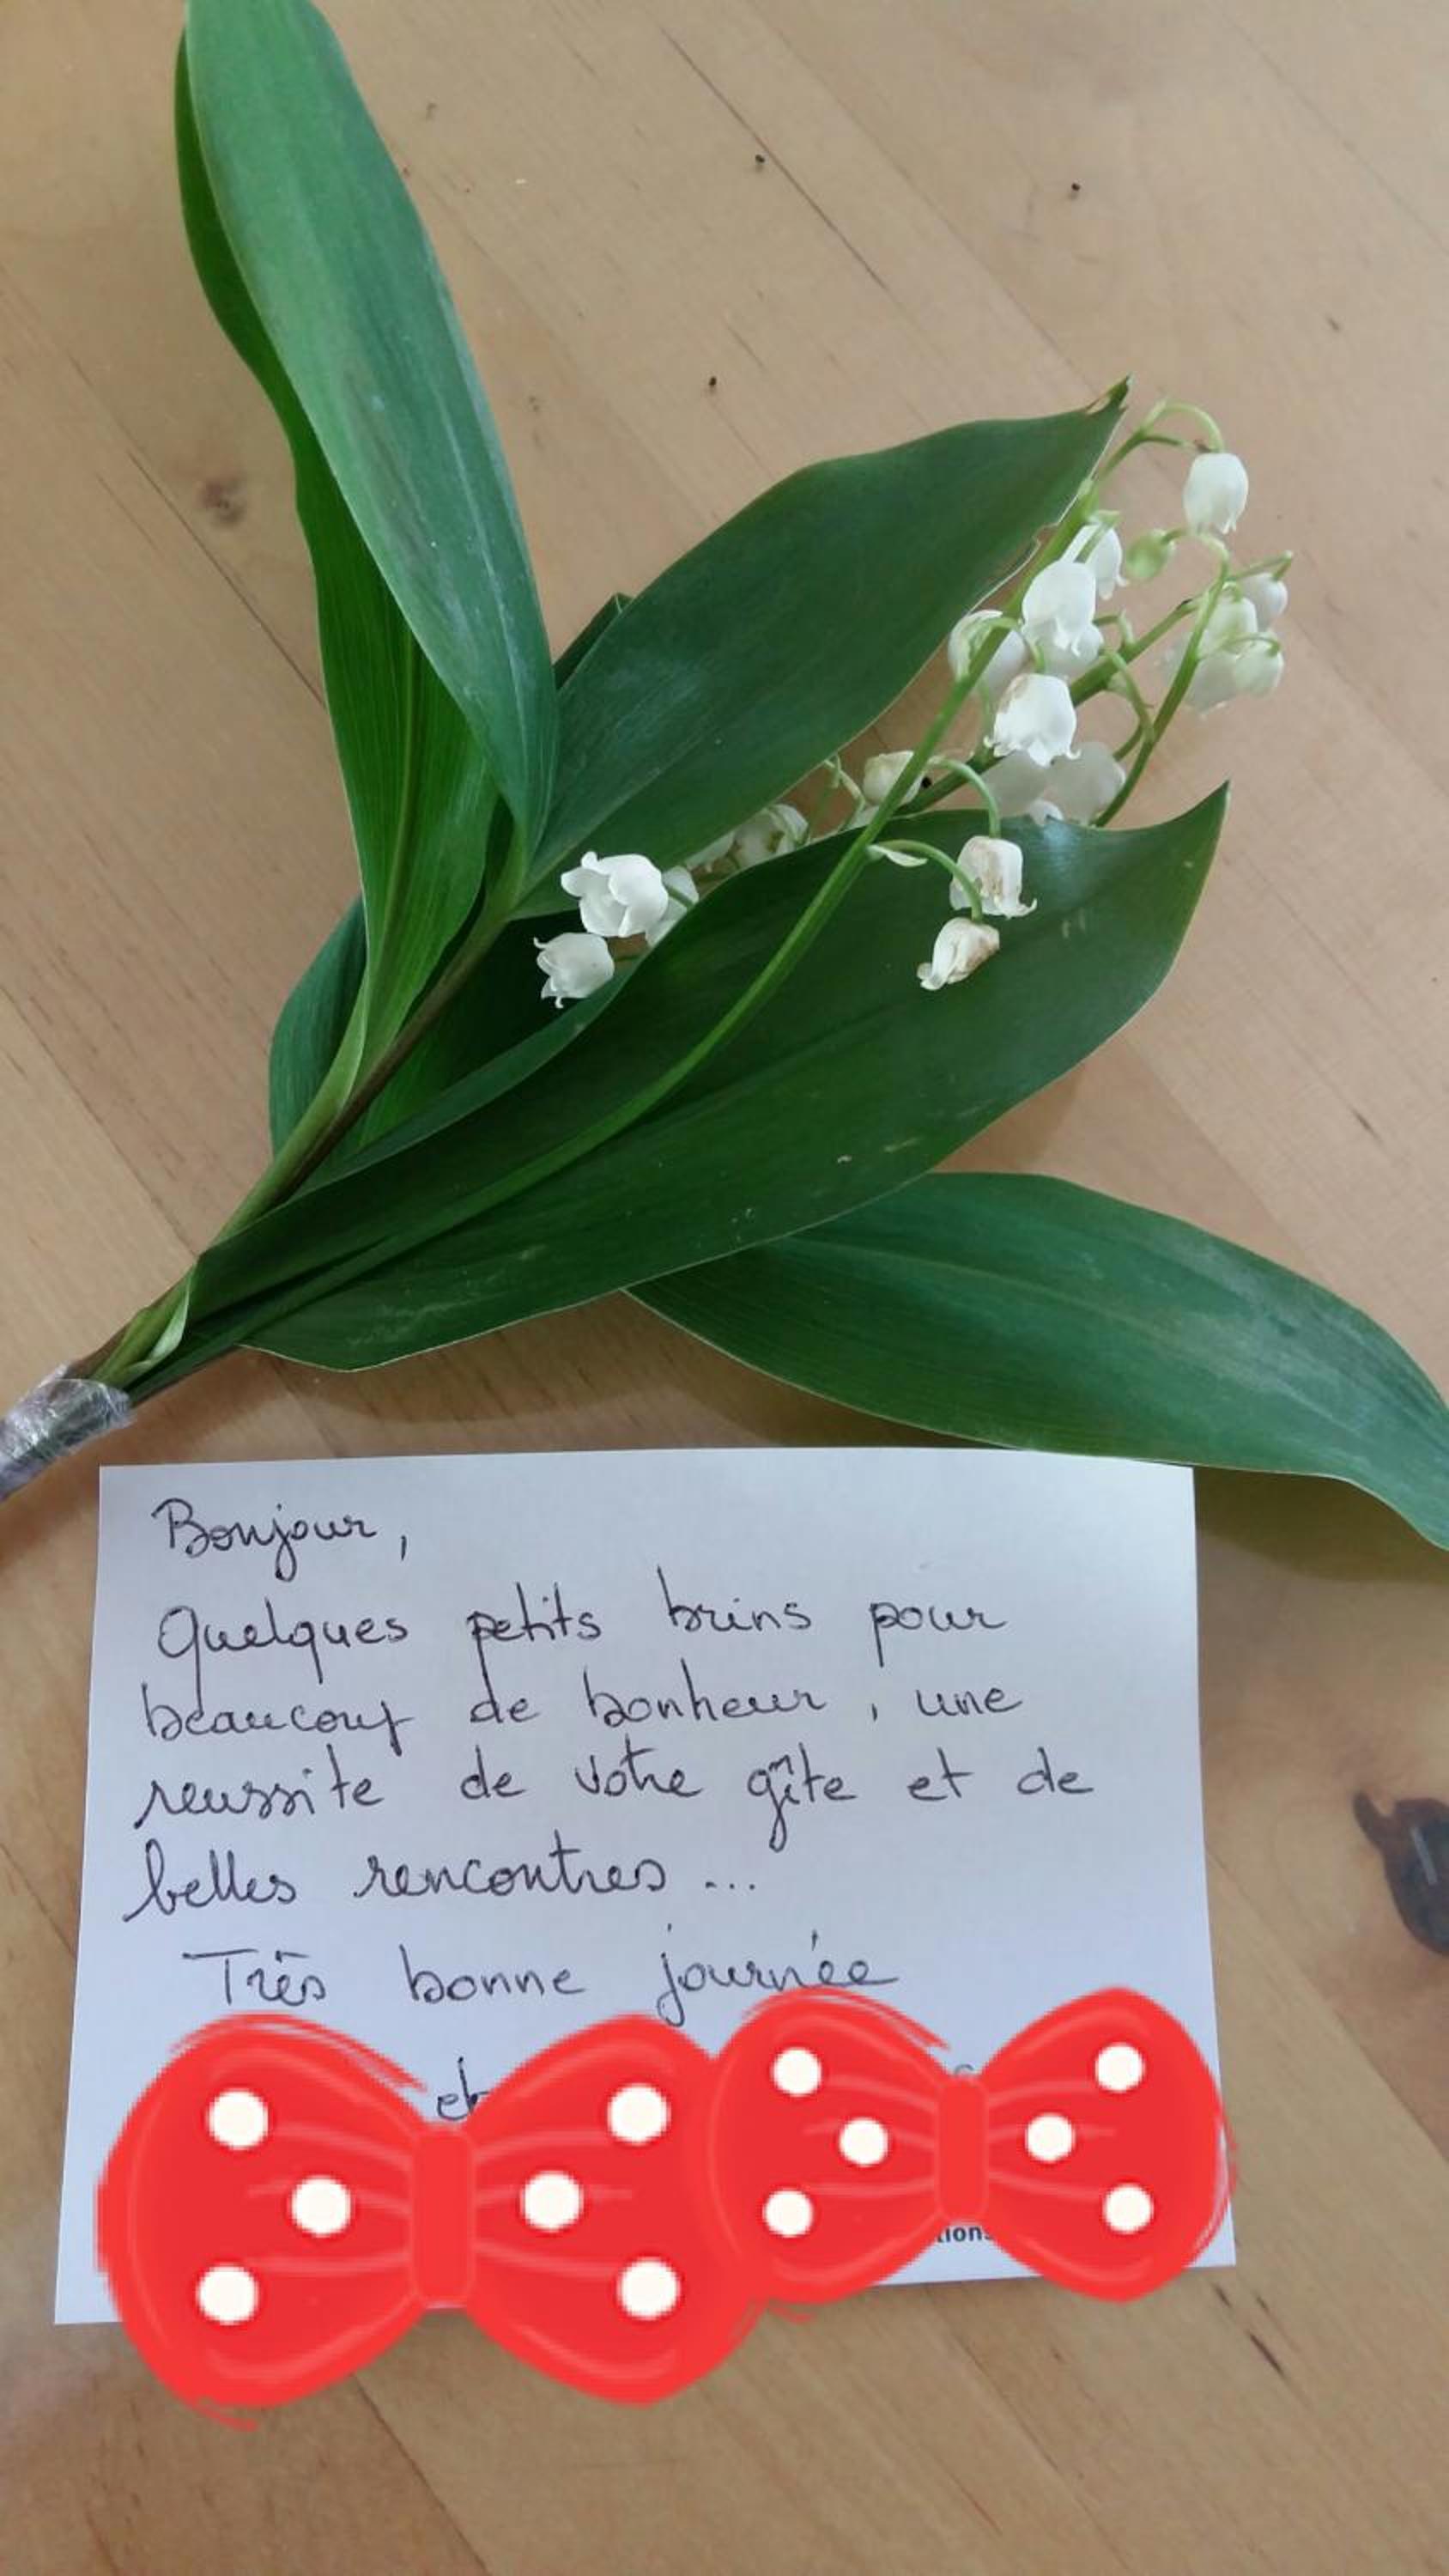 Bonjour,
Quelques petits brins pour
beaucoup de bonheur, une
reussite de votre gîte et de
belles rencontres...
Très bonne journée
et
tions